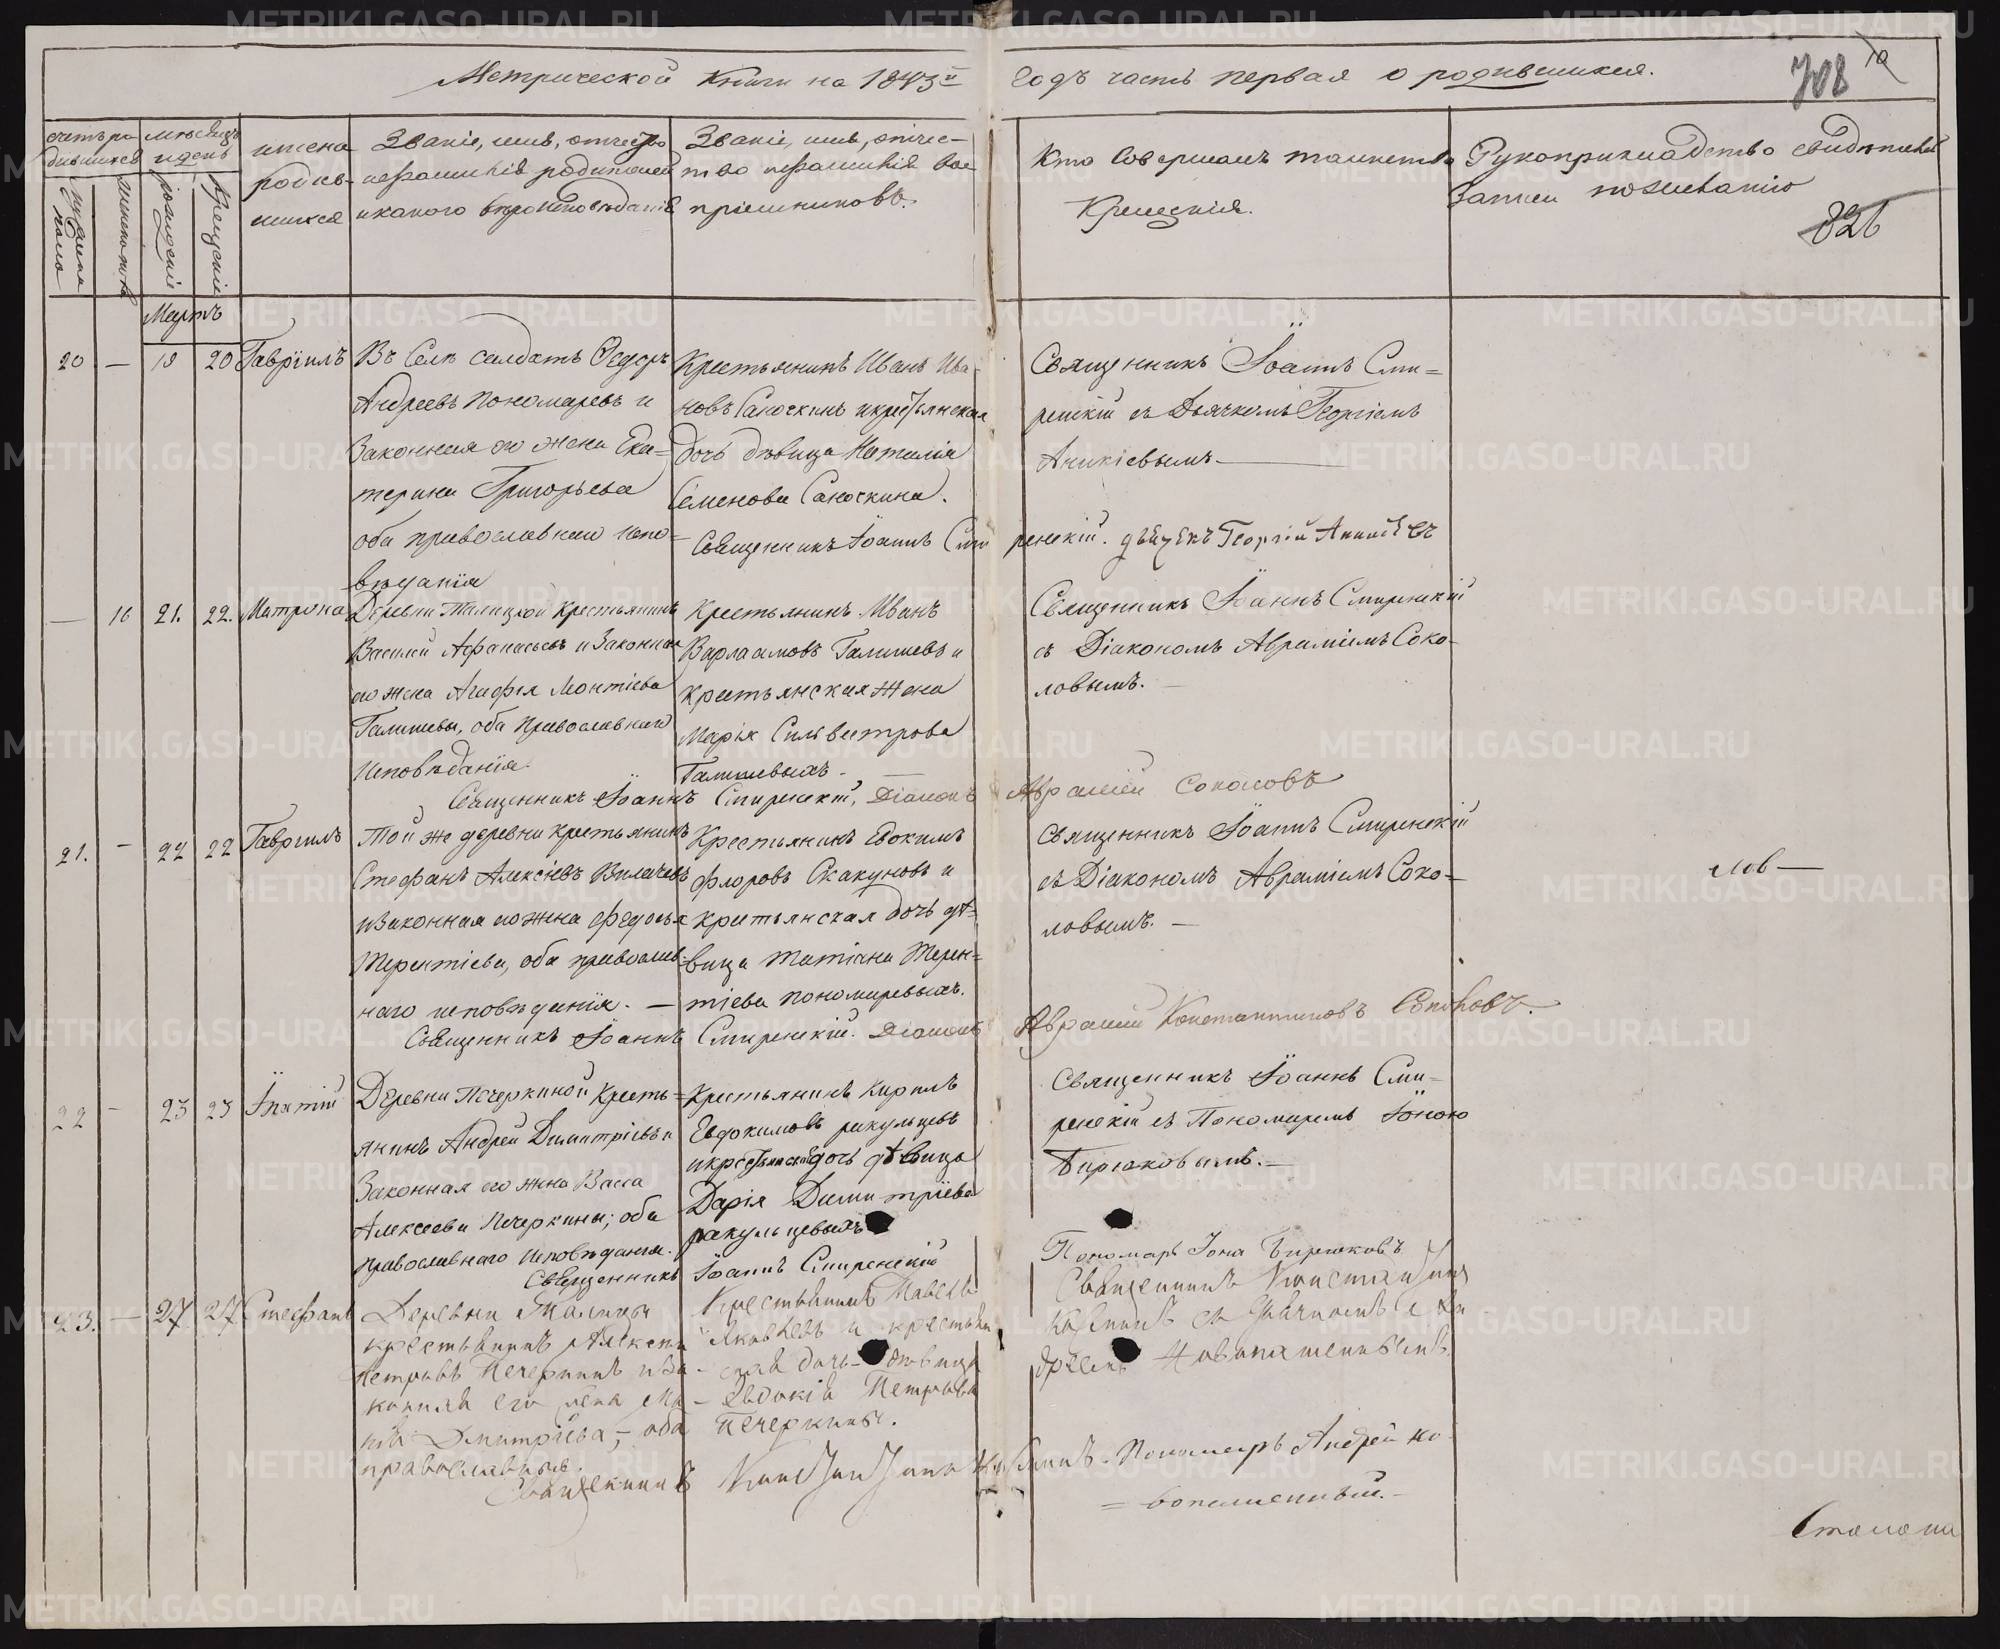 Метрической Книги на 1843й Годъ часть первая о родившихся.
708
счетъ ро-
дившихся
мѣсяцъ
и день
имена
родив-
шихся
Званіе, имя, отчество
и фамилія родителей
и какого вѣроисповѣданія
Званіе, имя, отчес-
тво и фамилія вос-
пріемниковъ.
Кто совершалъ таинство
Крещенія.
Рукоприкладство свидѣтелей
записи по желанію
826
мужеска
пола
женска
рожденія
Крещенія
Мартъ
20 — 18 20 Гавріилъ
Въ Селѣ солдатъ Ѳедоръ
Андреевъ Пономаревъ и
Законная его жена Ека=
терина Григорьева
оба православнаго испо=
вѣданія
Крестьянинъ Иванъ Ива-
новъ Саночкинъ и крестьянская
дочь дѣвица Наталія
Семенова Саночкина.
Священникъ Іоаннъ Сми=
ренскій съ Дьячкомъ Георгіемъ
Аникіевымъ
Священникъ Іоаннъ Сми
ренскій. дьячекъ Георгій Аникіевъ
— 16 21. 22. Матрона
Деревни Талицкой Крестьянинъ
Василій Афанасьевъ и Законная
его жена Агафія Леонтіева
Галишевы, оба Православнаго
Исповѣданія.
Крестьянинъ Иванъ
Варлаамовъ Галишевъ и
крестьянская жена
Марія Сильвестрова
Галишевыхъ.
Священникъ Іоаннъ Смиренскій
съ Діакономъ Авраміемъ Соко-
ловымъ.
Священникъ Іоаннъ Смиренскій, Діаконъ Аврамій Соколовъ
21. — 22 22 Гавріилъ
Той же деревни крестьянинъ
Стефанъ Алексіевъ
и Законная его жена Федосья
Терентіева, оба православ-
наго исповѣданія. —
Крестьянинъ Евдокимъ
Флоровъ Скакуновъ и
крестьянская дочь дѣ-
вица Татіана Терен=
тіева Пономаревыхъ.
Священникъ Іоаннъ Смиренскій
съ Діакономъ Авраміемъ Соко-
ловымъ. —
лов—
Священникъ Іоаннъ Смиренскій. Діаконъ Аврамій Константиновъ Соколовъ.
22 — 23 23 Ѵпатій
Деревни Печеркиной Кресть-
янинъ Андрей Димитріевъ и
Законная его жена Васса
Алексеева Печеркины; оба
православнаго исповѣданія.
Крестьянинъ Кирилъ
Евдокимовъ ракульцевъ
и крестьянская дочь дѣвица
Дарія Димитріева
ракульцевыхъ
Священникъ Іоаннъ Сми-
ренскій съ Пономаремъ Іоною
Бирюковымъ. —
Священникъ Іоаннъ Смиренскій
Пономарь Іона Бирюковъ
23. — 27 27 Стефанъ
Деревни Талицы
крестьянинъ Алексей
Петровъ Печеркинъ и за-
конная его жена
Дмитріева, — оба
православные.
Крестьянинъ Павелъ
Яковлевъ и крестьян
ская дочь дѣвица
Евдокія Петрова
Печеркины.
Священникъ Константинъ
съ Дьячкомъ Ан
дреемъ Новопашеннымъ
Священникъ Константинъ
Пономарь Андрей Но-
=вопашенный. —
Степана